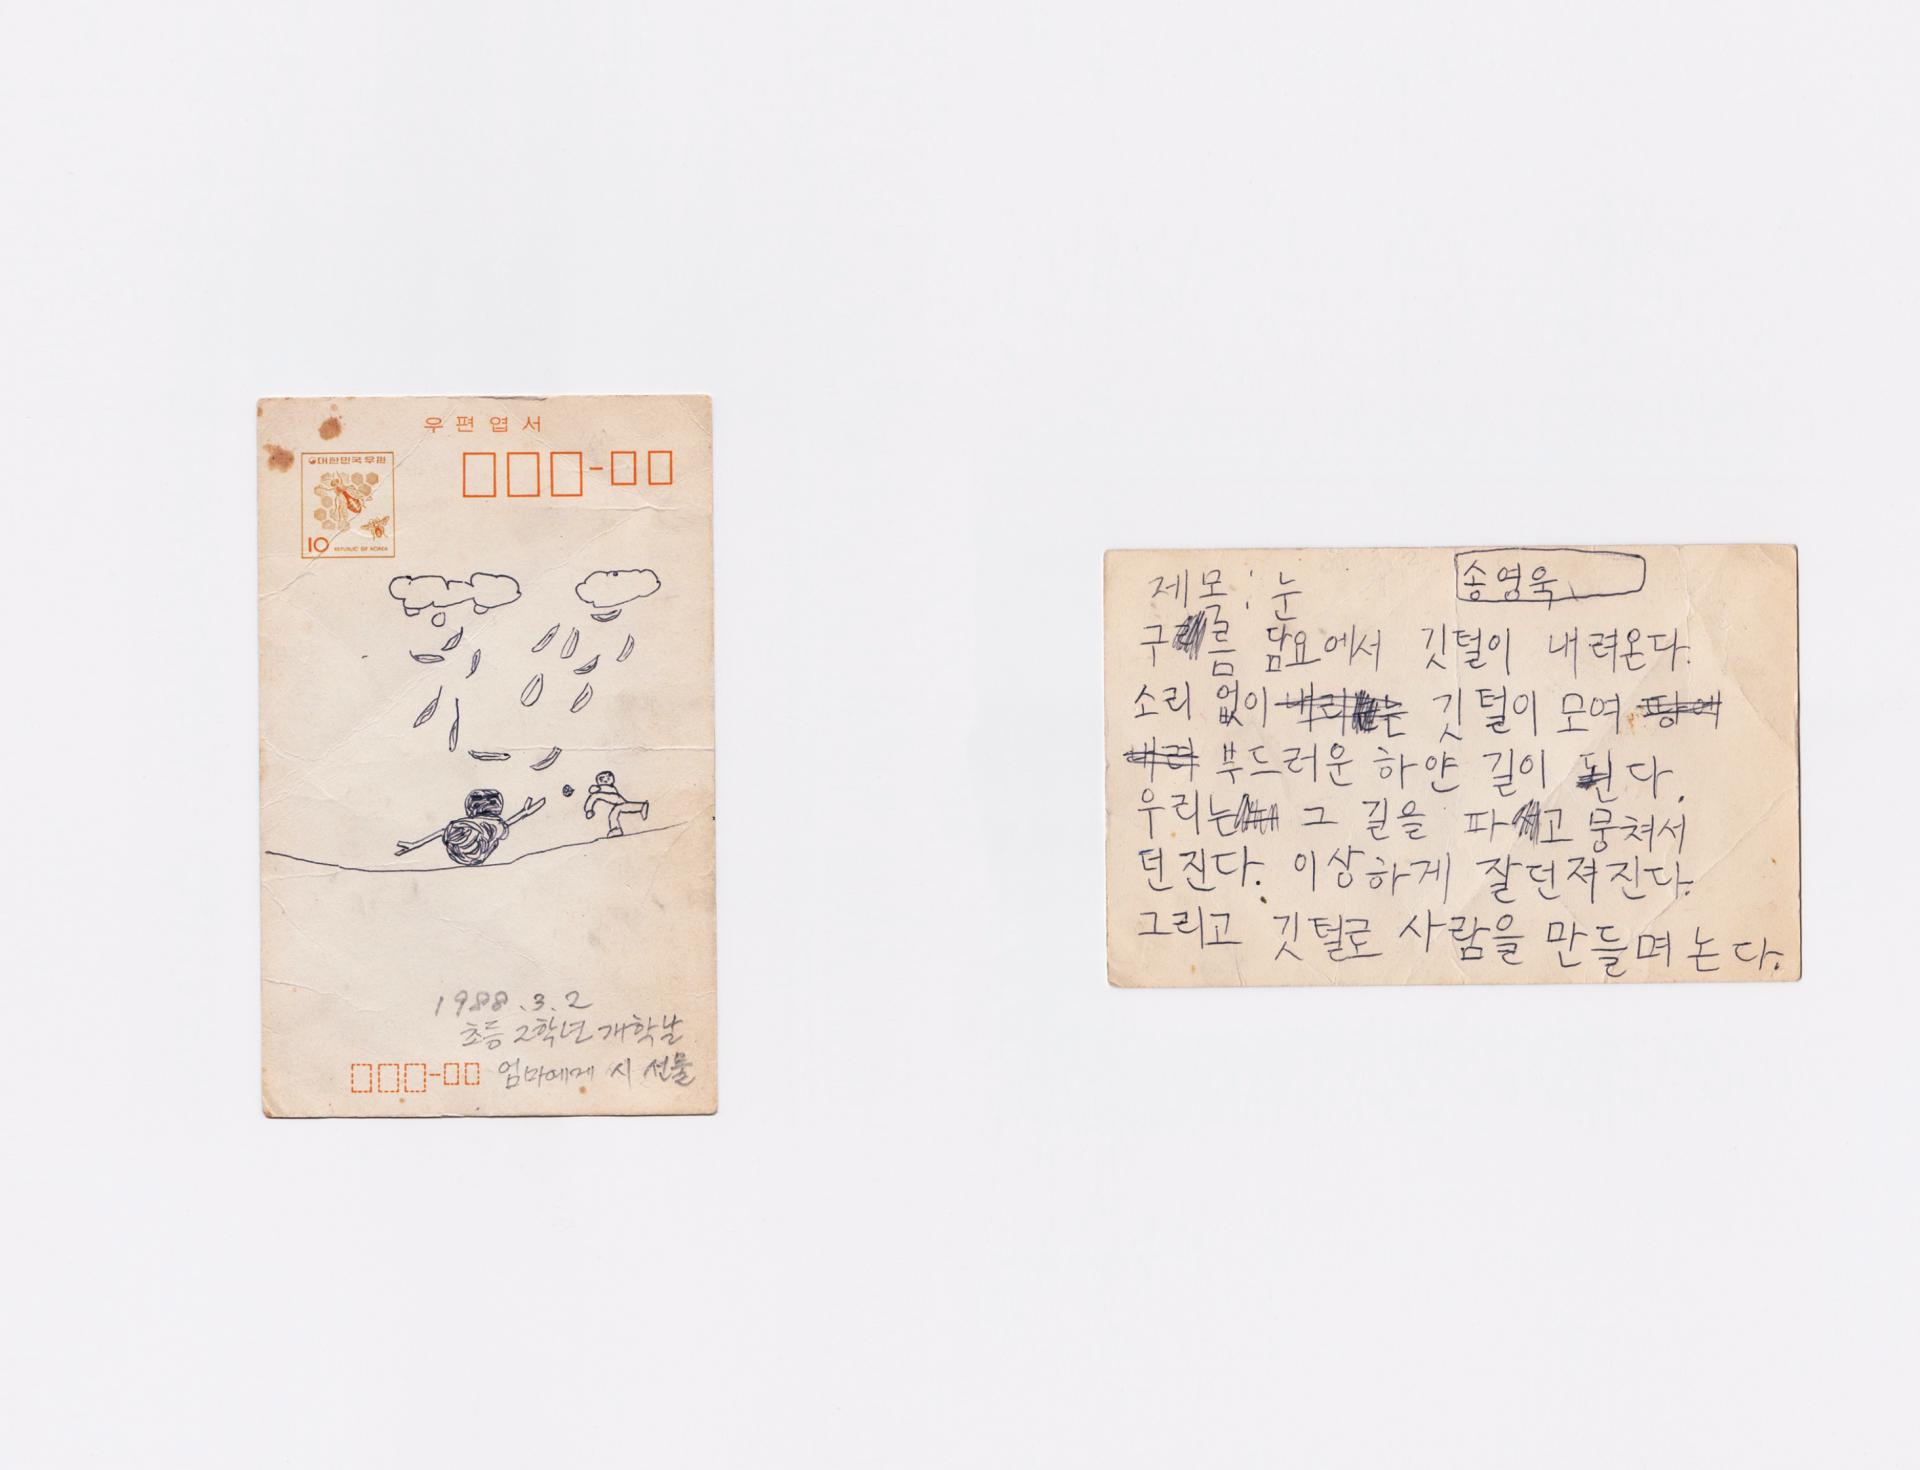 우편엽서
대한민국우편
10 REPUBLIC OF KOREA
1988.3.2
초등 2학년 개학날
엄마에게 시 선물
제목: 눈
송영욱
구름 담요에서 깃털이 내려온다.
소리 없이 내리는 깃털이 모여 땅에
내려 부드러운 하얀 길이 된다.
우리는 그 길을 파고 뭉쳐서
던진다. 이상하게 잘던져진다.
그리고 깃털로 사람을 만들며 논다.